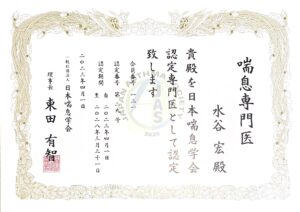 喘息専門医
水谷 宏 殿
貴殿を日本喘息学会
認定専門医として認定
致します
認定期間
自 二〇二三年四月一日
至 二〇二八年三月三十一日
二〇二三年四月一日
一般社団法人 日本喘息学会
理事長 東田 有智